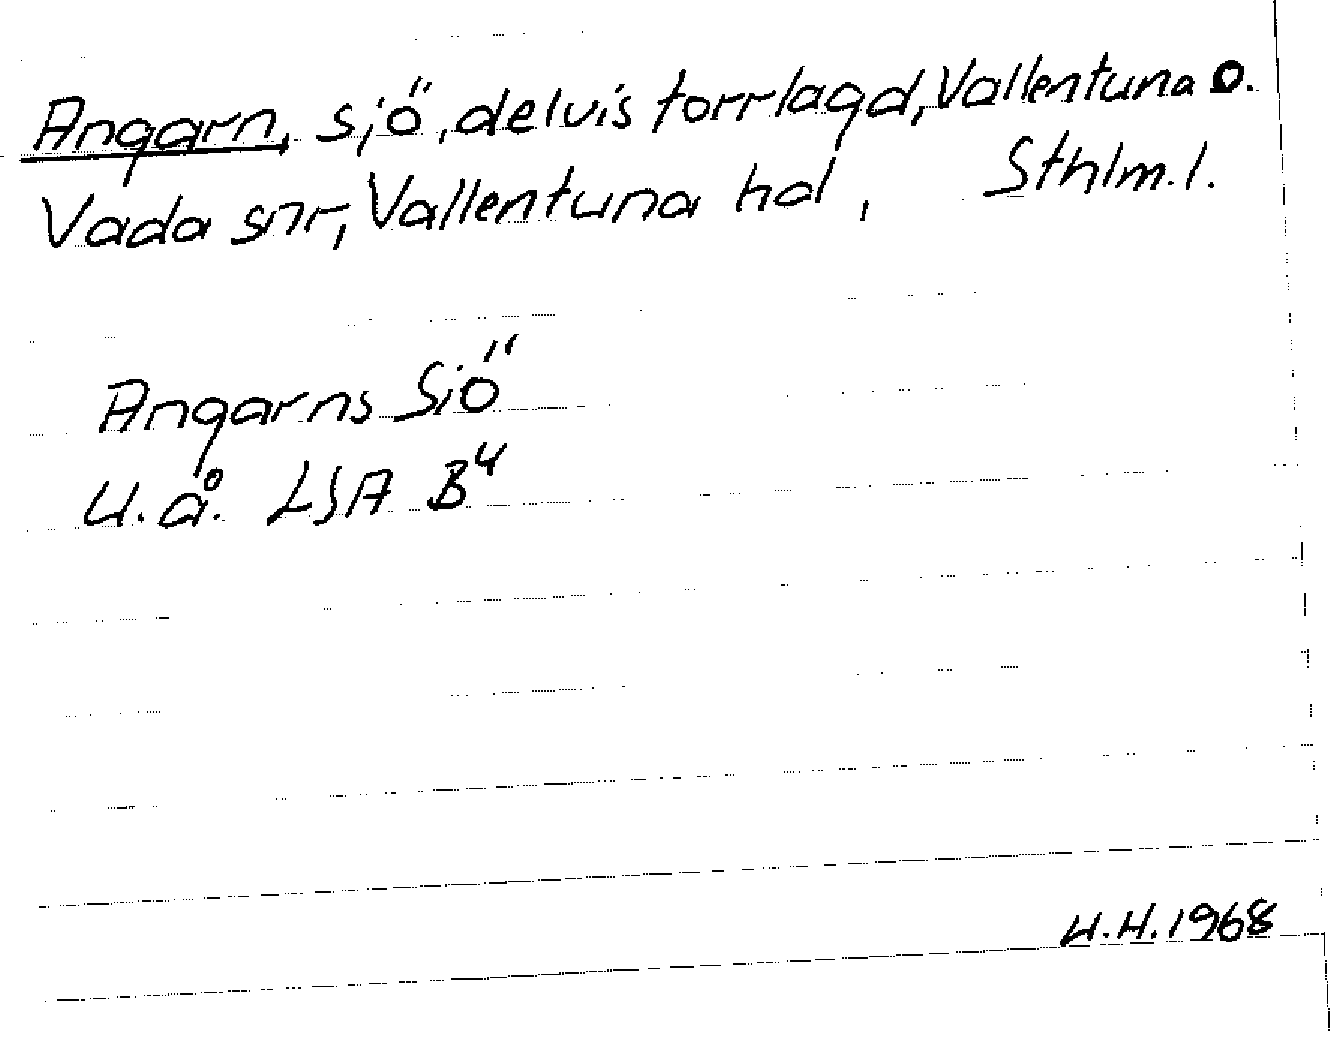 Angarn, sjö, delvis torrlagd, Vallentuna o.
Vada snr, Vallentuna hd, Sthlm. l.
Angarns Siö
U. å. LSA B4
U.H. 1968